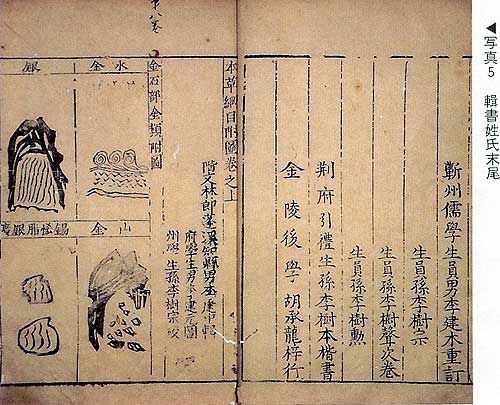 ◀写真5 輯書姓氏末尾
蘄州儒學生員男李建木重訂
生員孫李樹宗
生員孫李樹聲次卷
生員孫李樹勳
荆府引禮生孫李樹本楷書
金陵後學胡承龍梓行
本草綱目附圖卷之上
階文林郎蓬溪知縣男李建中輯
府學生男李建元圖
州學生孫李樹宗校
金石部金類附圖
水金
銀
山金